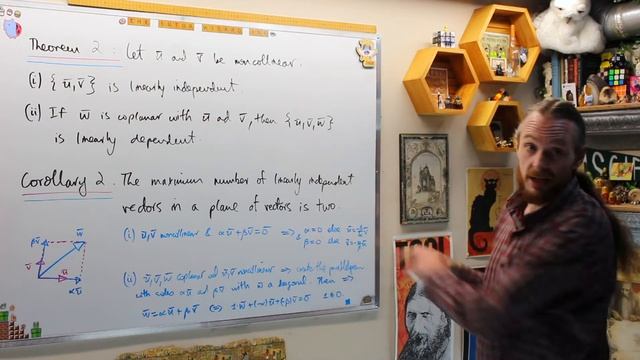 THE TUTOR WIZARD
Theorem 2: Let ū and v̄ be noncollinear.
(i) {ū, v̄} is linearly independent.
(ii) If w̄ is coplanar with ū ad v̄, then {ū, v̄, w̄}
is linearly dependent.
Corollary 2. The maximum number of linearly independent
vectors in a plane of vectors is two.
(i) ū, v̄ noncollinear & αū+βv̄=ō ⟹ α=0 else
β=0 else
(ii) ū, v̄, w̄ coplanar ad ū, v̄ noncollinear ⟹ the parallelogram
with sides αū ad βv̄ with w̄ a diagonal. Then ⟹
w̄=αū+βv̄ ⟺ 1·w̄+(-α)ū+(-β)v̄=ō 1≠0.
βv̄ w̄
v̄
ū
αū